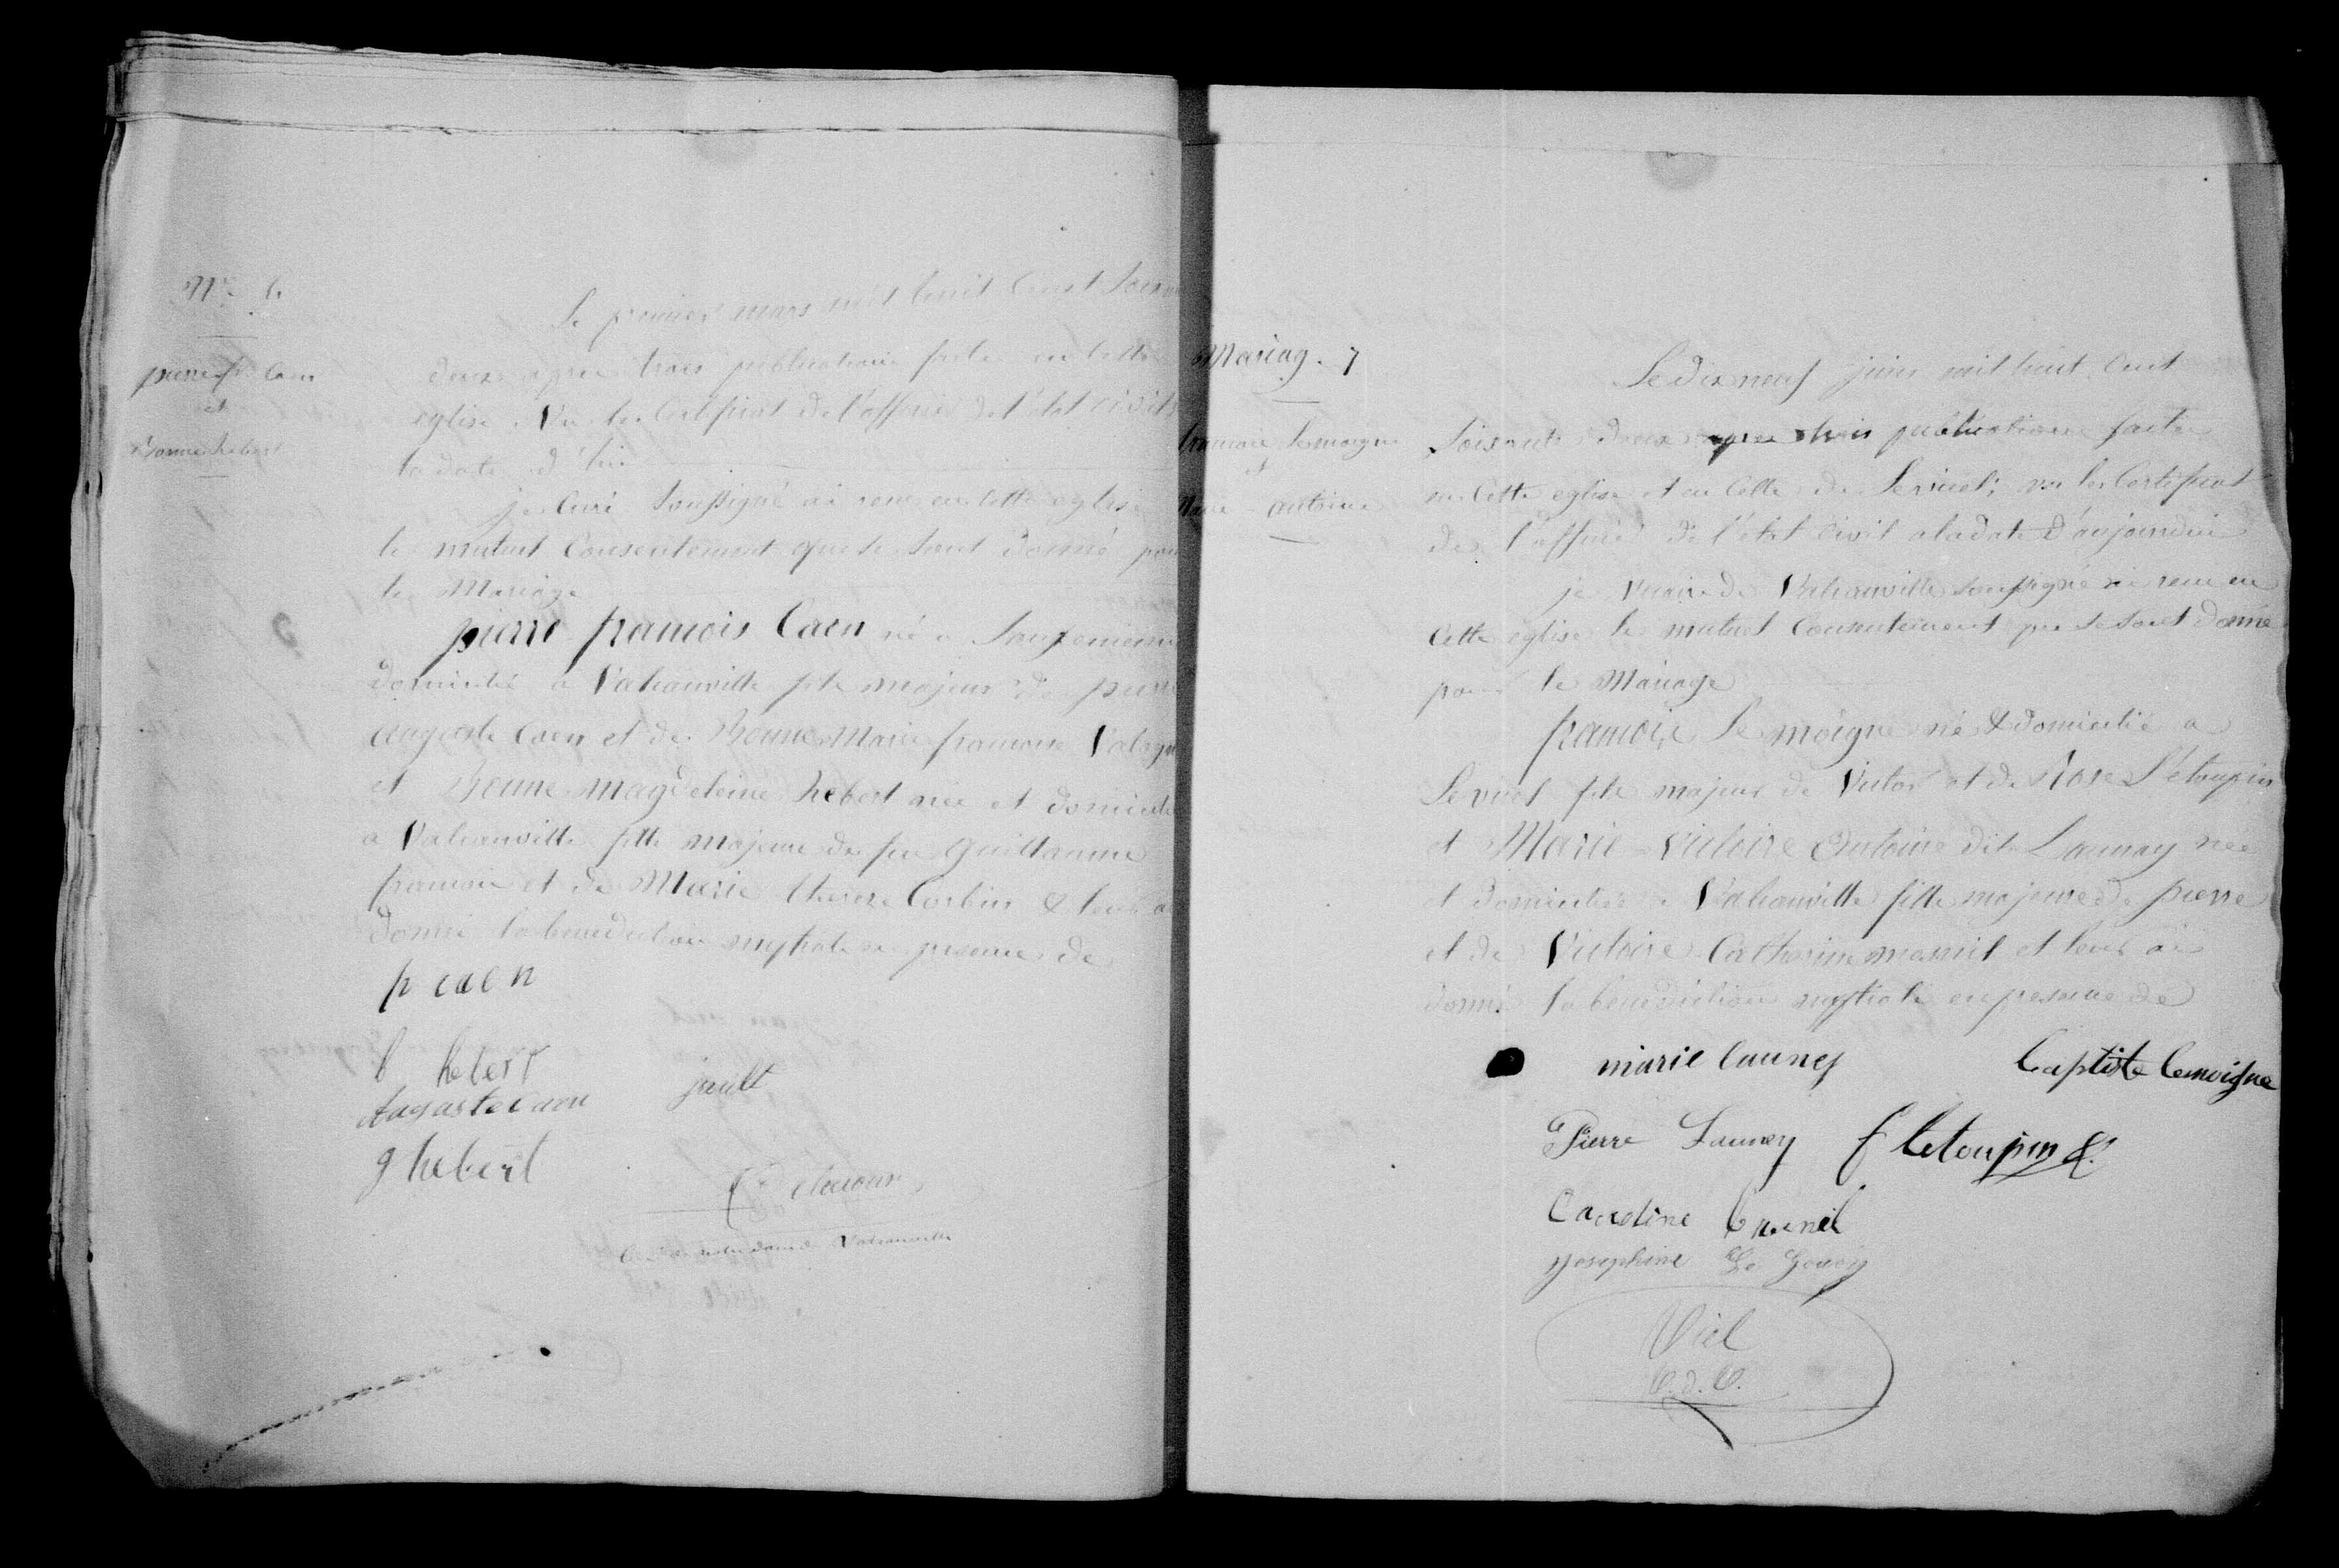 N° 6
pierre f. Caen
et
Bonne hebert
Le premier mars mil huit Cent Soixan
deux apres trois publications faite en cette
eglise. Vu le Certificat de l'officier de l'etat civil
la date d'hier
je Curé Soussigné ai recu en cette eglise
le mutuel Consentement que se sont donné pour
le Mariage
pierre francois Caen né a
domicilié a Vatrauville fils majeur de pierre
auguste Caen et de Bonne Marie francoise Valogn
et Bonne magdeleine hebert née et domicilie
a Vatrauville fille majeure de feu Guillaume
francois et de Marie therese Corbin & leur ai
donné la benediction nuptiale en presence de
p caen
b hebert
Auguste caen jouilt
g hebert
Mariag. 7
francois Lemoigne
et
Marie - antoine
Le dix neuf juin mil huit Cent
Soixante deux apres trois publications faites
en Cette eglise et en Celle de ; vu les Certificat
de l'officier de l'état Civil a la date d'aujourdui
je vicaire de Vatrauville soussigné ai recu en
Cette eglise le mutuel Consentement que se sont donné
pour le Mariage
francois Le moigne né & domicilié a
fils majeur de Victor et de Rose Létoupin
et Marie - victoire Antoine dit Launay née
et domicilié a Vatrauville fille majeure de pierre
et de Victoire Catherine mesnil et leur ai
donné la benediction nuptiale en presence de
marie launey baptiste lemoigne
Pierre Launey f letoupin
Caroline
josephine Le
Viel